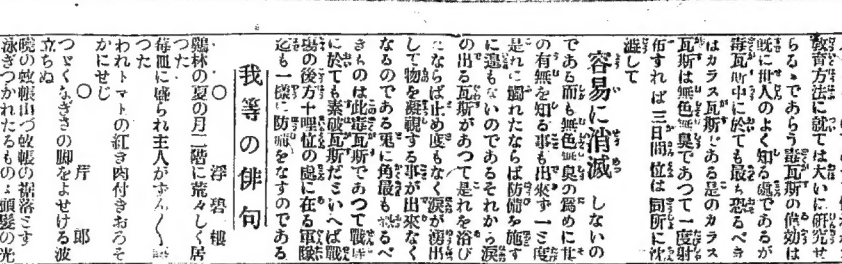 敎育方法に就ては大いに硏究せ
らるゝであらう毒瓦斯の偉効は
旣に世人のよく知る處であるが
毒瓦斯中に於ても最も恐るべき
はカラス瓦斯である是のカラス
瓦斯は無色無臭であつて一度射
布すれば三日間位は同所に沈
澱して
容易に消滅 しないの
である而も無色無臭の爲めに其
の有無を知る事も出來ず一さ度
是れに觸れたならば防備を施す
に遑もないのであるそれから淚
の出る瓦斯があつて是れを浴び
たならば止め度もなく淚が湧出
して物を凝視する事が出來なく
なるのである兎に角最も恐るべ
きものは此毒瓦斯であつて戰時
に於ても素破瓦斯だといへば戰
場の後方十哩位の處に在る軍隊
迄も一樣に防備をなすのである
我等の俳句
○ 浮碧樓
鷄林の夏の月二階に荒々しく居
つた
苺皿に盛られ主人が
つた
われトマトの紅き肉付きおろそ
かにせじ
○ 芹郞
つよくなぎさの脚をよせける波
立ちぬ
曉の蚊帳出づ蚊帳の裾落とす
泳ぎつかれたるものゝ頭髮の光